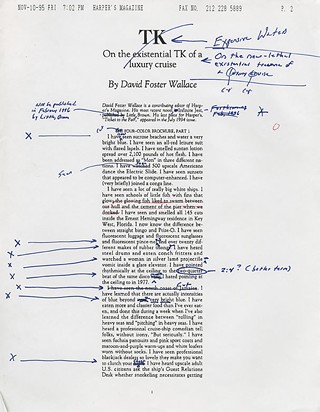 NOV-10-95 FRI 7:02 PM HARPER'S MAGAZINE FAX NO. 212 228 5889 P. 2
TK
Expensive Waters
On the existential TK of a
luxury cruise
On the near-lethal
existential
of a luxury cruise
By David Foster Wallace
Will be published
in February 1996
by Little, Brown
David Foster Wallace is a contributing editor of Harper's
Magazine. His most recent novel, Infinite Jest,
published by Little, Brown. His last piece for Harper's,
"Ticket to the Fair," appeared in the July 1994 issue.
FOUR-COLOR BROCHURE, PART I
I have seen sucrose beaches and water a very
bright blue. I have seen an all-red leisure suit
with flared lapels. I have smelled suntan lotion
spread over 2,100 pounds of hot flesh. I have
been addressed as "Mon" in three different nations.
I have watched 500 upscale Americans
dance the Electric Slide. I have seen sunsets
that appeared to be computer-enhanced. I have
(very briefly) joined a conga line.
I have seen a lot of really big white ships. I
have seen schools of little fish with fins that
glow
our hull and the cement of the pier when we
docked. I have seen and smelled all 145 cats
inside the Ernest Hemingway residence in Key
West, Florida. I now know the difference
between straight bingo and Prize-O. I have seen
fluorescent luggage and fluorescent sunglasses
and fluorescent pince-nez and over twenty different
makes of rubber thong. I have heard
steel drums and eaten conch fritters and
watched a woman in silver lamé projectile
vomit inside a glass elevator. I have pointed
rhythmically at the ceiling to the two-quarter
beat of the same disco I hated pointing at
the ceiling to in 1977.
2:4? (
I have
learned that there are actually intensities
of blue beyond very bright blue. I have
eaten more and classier food than I've ever eaten,
and done this during a week when I've also
learned the difference between "rolling" in
heavy seas and "pitching" in heavy seas. I have
heard a professional cruise-ship comedian tell
folks, without irony, "But seriously." I have
seen fuchsia pantsuits and pink sport coats and
maroon-and-purple warm-ups and white loafers
worn without socks. I have seen professional
blackjack dealers so lovely they make you want
to clutch your chest. I have heard upscale adult
U.S. citizens ask the ship's Guest Relations
Desk whether snorkeling necessitates getting